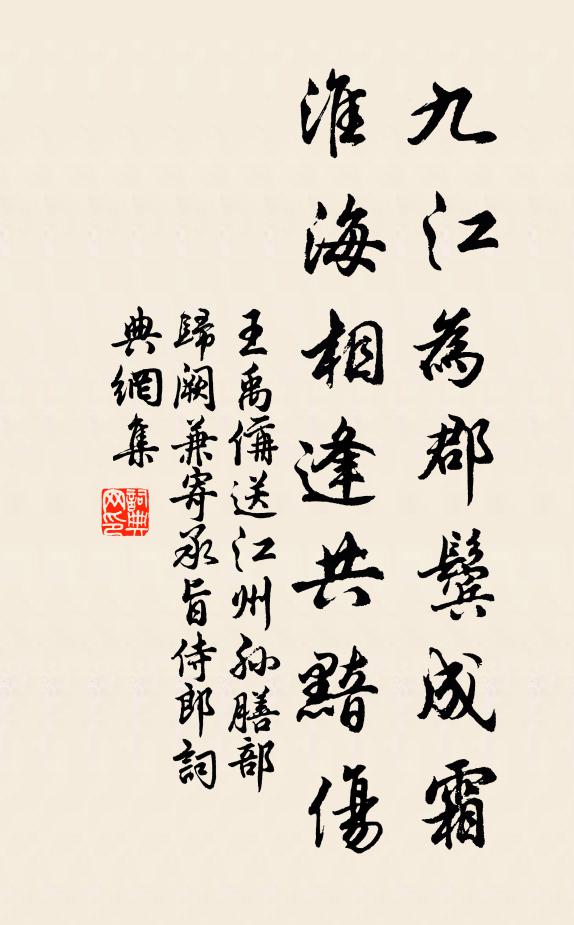 九江為郡鬢成霜
淮海相逢共黯傷
王禹偁送江州孙膳部
歸闕兼寄承旨侍郎詞
典網集
詞典
网印